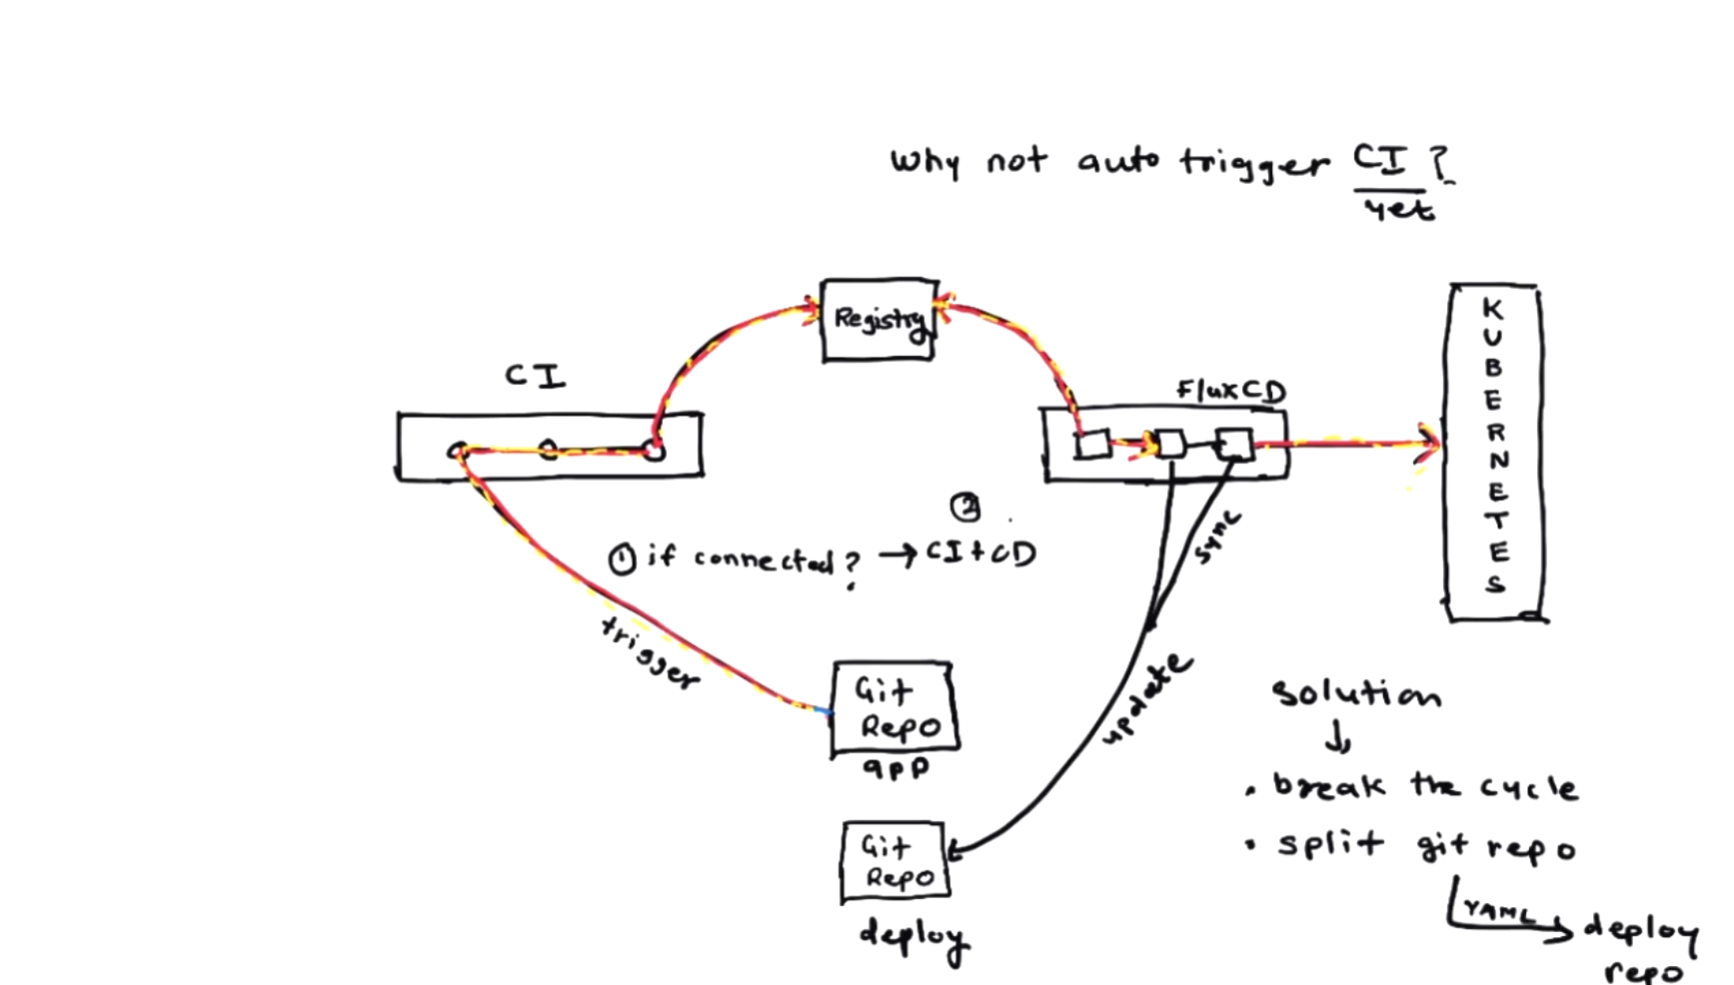 Why not auto trigger CI?
yet
Registry
CI
FluxCD
KUBERNETES
② 
① if connected? → CI+CD
sync
trigger
update
Git
Repo
app
Git
Repo
deploy
solution
↓
• break the cycle
• split git repo
YAML
deploy
repo